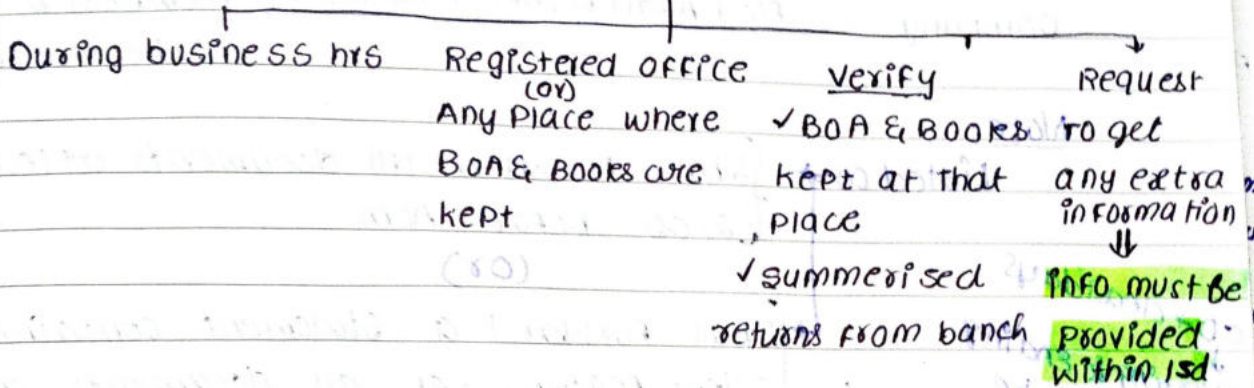 During business hrs
Registered office
(or)
Any Place where
BOA & Books are
kept
Verify
✓BOA & Books
kept at that
place
✓summerised
returns from banch
Request
to get
any extra
information
⇓
info must be
provided
within 15d